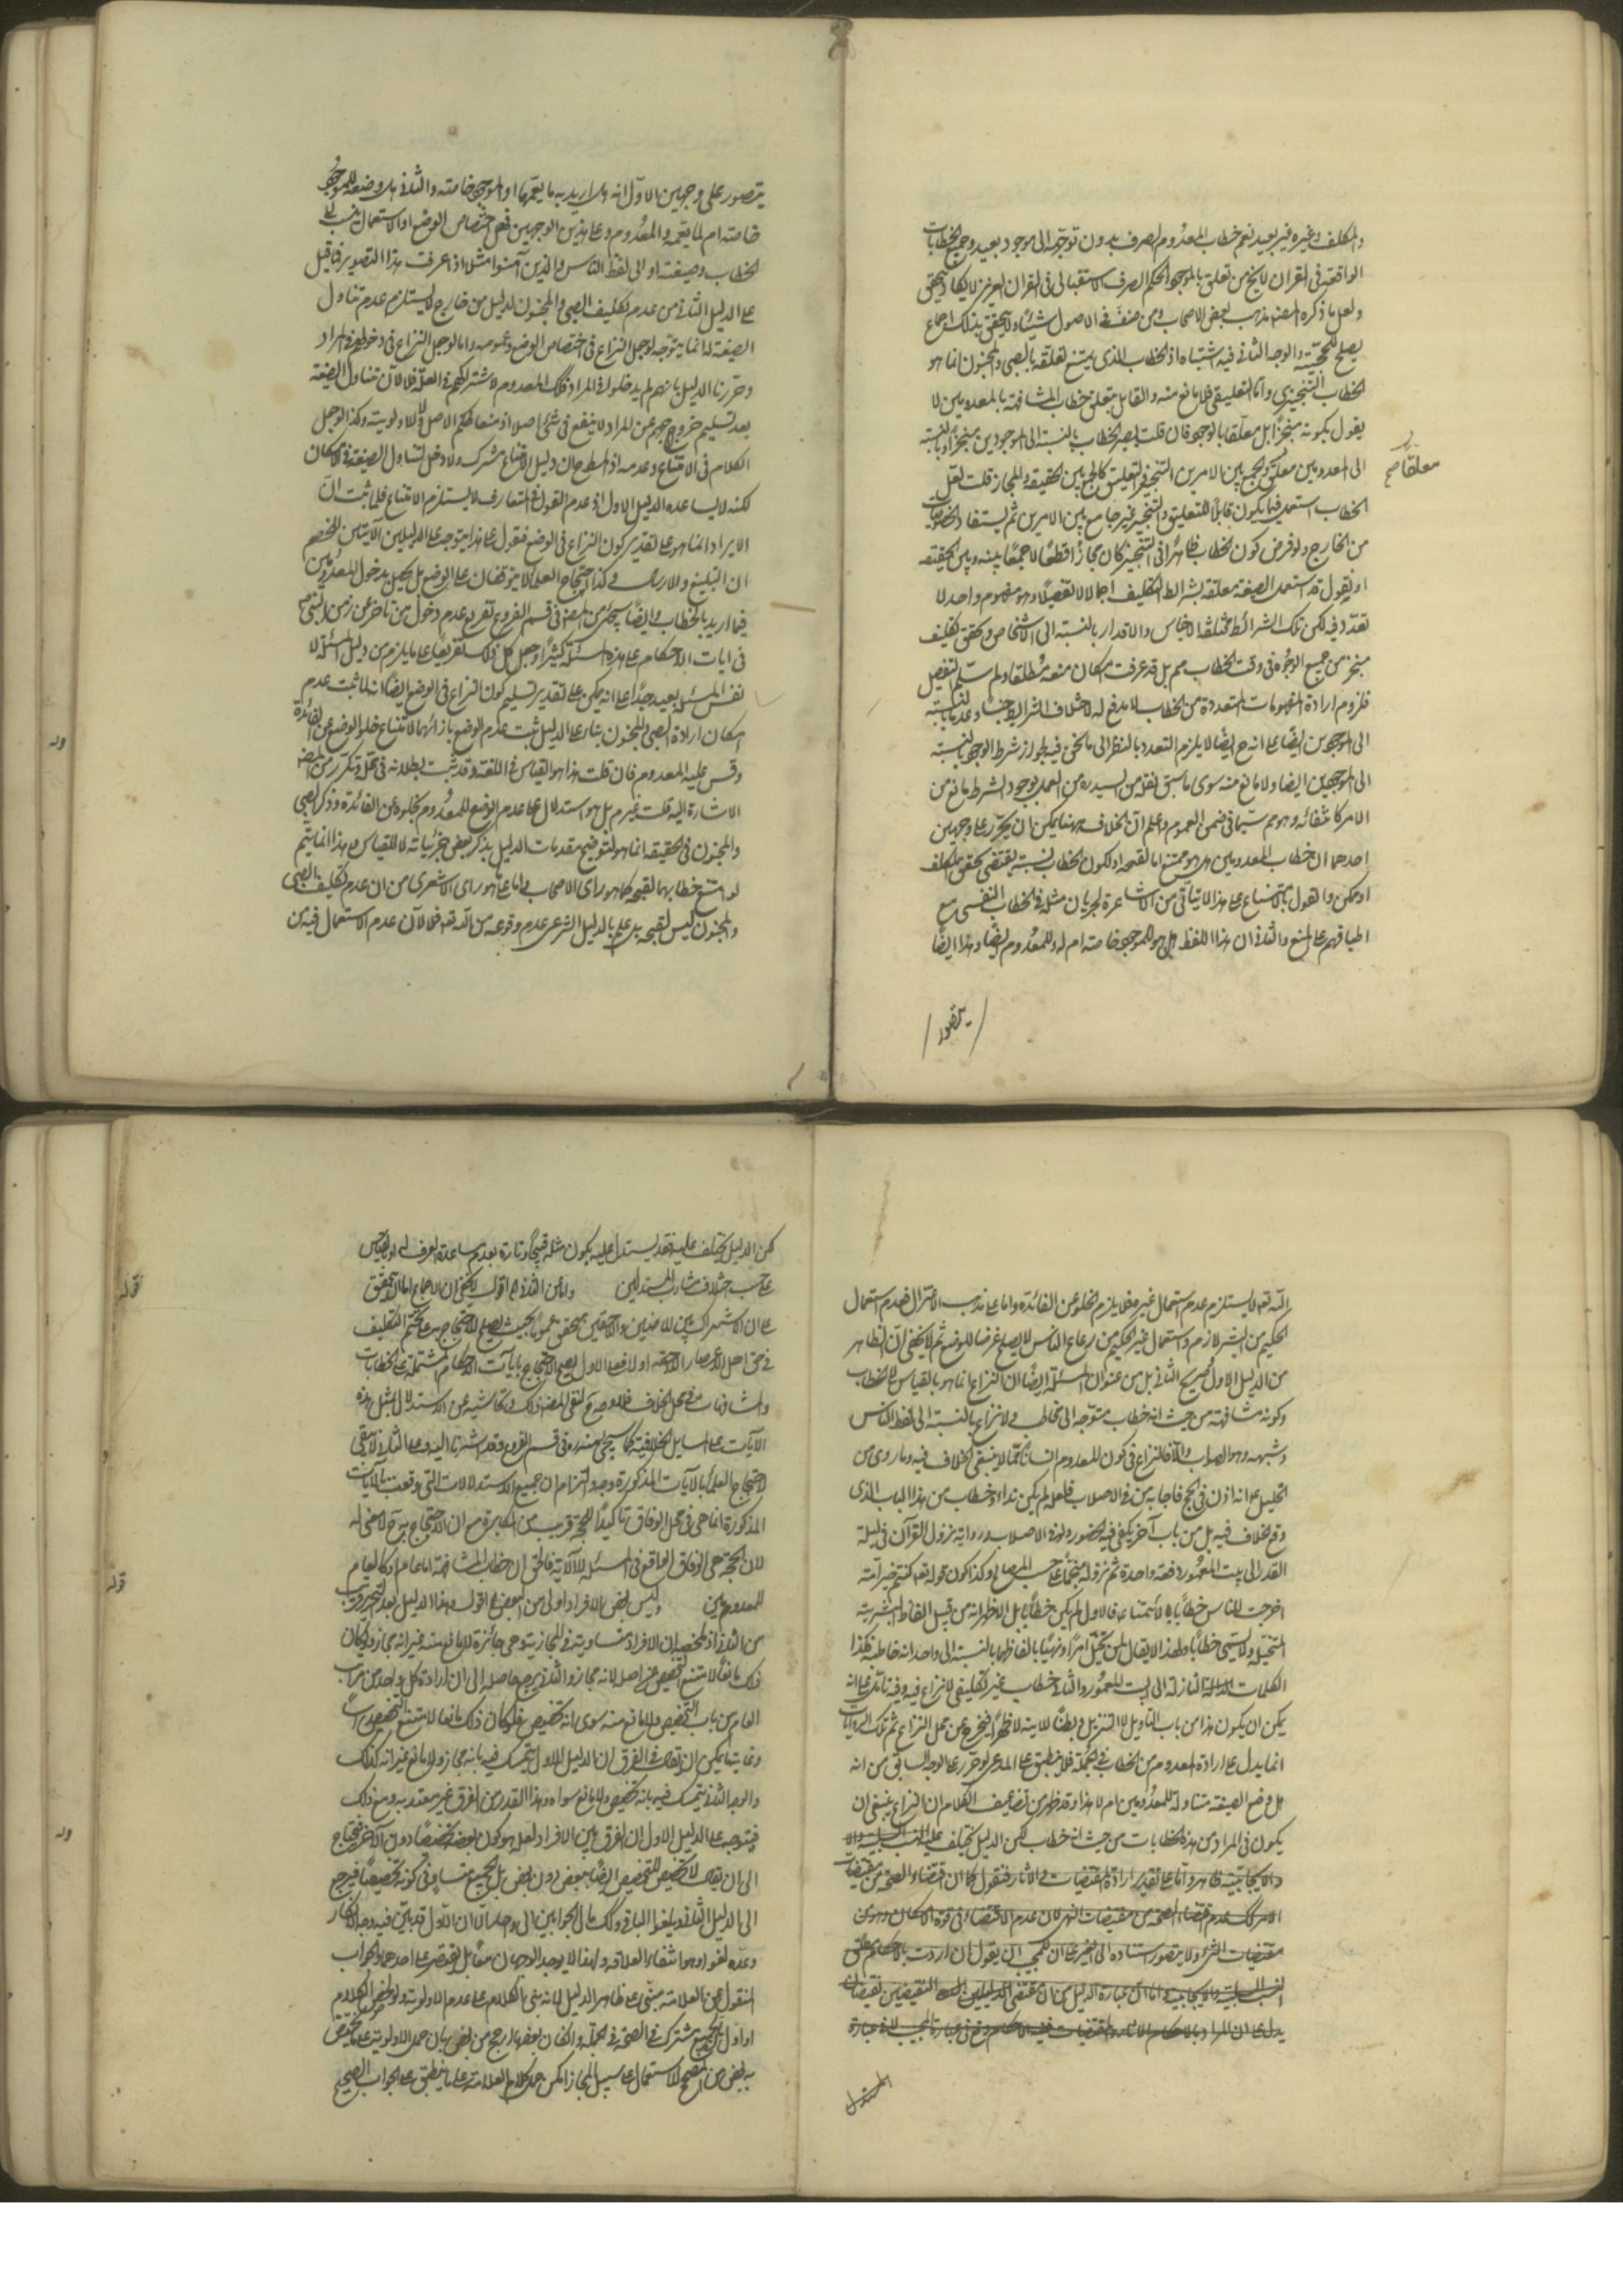 والمكلف وغيره غير بعيد نعم خطاب المعدوم الصرف بدون توجهه الى موجود بعيد وجميع الخطابات
الواقعة في القران لا يخ من تعلق بالموجود والحكم الصرف الاستقبالي في القران العزيز لا يكاد يتحقق
ولعل ما ذكره المصنف مذهب لبعض الاصحاب ومن صنف في الاصول شيئا ولا يتحقق بذلك اجماع
يصلح للحجية والوجه الثاني فيه اشتباه اذ الخطاب الذي يمتنع تعلقه بالصبي والمجنون انما هو
الخطاب التنجيزي واما التعليقي فلا مانع منه والقايل بتعلق خطاب المشافهة بالمعدومين لا
يقول بكونه منجزا بل معلقا بالوجود فان قلت يصير الخطاب بالنسبة الى الموجودين منجزا وبالنسبة
معلقا صح
الى المعدومين معلق والجمع بين الامرين التنجيز والتعليق كالجمع بين الحقيقة والمجاز قلت لعل
الخطاب استعمل فيما يكون قابلا للتعليق والتنجيز غير جامع بين الامرين ثم يستفاد الخصوصيات
من الخارج ولو فرض كون الخطاب ظاهرا في التنجيز كان مجازا قطعا لا جمعا بينه وبين الحقيقة
او نقول قد استعمل الصيغة معلقة بشرائط التكليف اجمالا لا تفصيلا وهو مفهوم واحد لا
تعدد فيه لكن تلك الشرائط مختلفة الاجناس والاقدار بالنسبة الى الاشخاص وتحقق تكليف
منجز من جميع الوجوه في وقت الخطاب مم بل قد عرفت امكان منعه مطلقا ولم استلم التفصيل
فلزوم ارادة المفهومات المتعددة من الخطاب لا مدفع له لاختلاف الشرايط جنسا وعددا بالنسبة
الى الموجودين ايضا على انه ح ايضا لا يلزم التعدد بالنظر الى ما نحن فيه لجواز شرط الوجود بالنسبة
الى الموجودين ايضا ولا مانع منه سوى ما سبق نقله من السيد ره من العمل بوجود الشرط مانع من
الامر كانتفائه وهو مم سيما في ضمن العموم واعلم ان الخلاف ههنا يمكن ان يحرر على وجهين
احدهما ان خطاب المعدومين هل هو ممتنع اما لقبحه او لكون الخطاب نسبة يقتضي تحقق المكلف
او ممكن والقول بالامتناع على هذا لا يتأتى من الاشاعرة لجريان مثله في الخطاب النفسي مع
اطباقهم على المنع والثاني ان هذا اللفظ هل هو للموجود خاصة ام له وللمعدوم ايضا وهذا ايضا
يتصور
يتصور على وجهين الاول انه هل اريد به ما يعمهما او الموجود خاصة والثاني هل وضعه للموجود
خاصة ام لما يعمه والمعدوم وعلى هذين الوجهين فعل اختصاص الوضع او الاستعمال ينسب الى
الخطاب وصيغته او الى لفظ الناس والذين آمنوا مثلا اذا عرفت هذا التصوير فما قيل
على الدليل الثاني من عدم تكليف الصبي والمجنون لدليل من خارج لا يستلزم عدم تناول
الصيغة له انما يتوجه لو جعل النزاع في اختصاص الوضع وعمومه واما لو جعل النزاع في دخولهم في المراد
وحررنا الدليل بانهم لم يدخلوا في المراد فكذلك المعدوم لاشتراكهم في العلة فلا لان تناول الصيغة
بعد تسليم خروجهم عن المراد لا ينفع في شيء اصلا
الكلام في الامتناع وعدمه
لكنه لا يساعده الدليل الاول اذ عدم القول في المتعارف لا يستلزم الامتناع فلما ثبت ان
الايراد انما هو على تقدير كون النزاع في الوضع فنقول على هذا يتوجه على الدليلين الآتيين للخصم
ان التبليغ والارسال وكذا احتجاج العلماء لا يتوقفان على الوضع بل يحصل بدخول المعدومين
فيما اريد بالخطاب وايضا سيجري المصنف في قسم الفروع تفريع عدم دخول من تاخر عن زمن النبي ص
في ايات الاحكام على هذه المسئلة كثيرا وجعل كل ذلك تفريعا على ما يلزم من دليل المسئلة لا
نفس المسئلة بعيد جدا على انه يمكن على تقدير تسليم كون النزاع في الوضع ايضا انه لما ثبت عدم
امكان ارادة الصبي والمجنون بناء على الدليل ثبت عدم الوضع بازائهما لامتناع خلو الوضع عن الفائدة
وقس عليه المعدوم فان قلت هذا هو القياس في اللغة وقد ثبت بطلانه في محله وتكرر من المصنف
الاشارة اليه قلت غير مم بل هو استدلال على عدم الوضع للمعدوم بخلوه عن الفائدة وذكر الصبي
والمجنون في الحقيقة انما هو لتوضيح مقدمات الدليل بذكر بعض جزئياته لا للقياس وهذا انما يتم
لو امتنع خطابهما لقبحه كما هو راى الاصحاب واما على ما هو راى الاشعرى من ان عدم تكليف الصبى
والمجنون ليس لقبحه بل علم بالدليل الشرعى عدم وقوعه من الله تعه فلا لان عدم الاستعمال فيه من
الله تعه لا يستلزم عدم استعمال غيره فلا يلزم الخلو عن الفائدة واما على مذهب الاعتزال فعدم استعمال
الحكيم من البشر لازم واستعمال غير الحكيم من رعاع الناس لا يصلح غرضا للوضع ثم لا يخفى ان الظاهر
من الدليل الاول وصريح الثاني بل من عنوان المسئلة ايضا ان النزاع انما هو بالقياس الى الخطاب
وكونه مشافهة من حيث انه خطاب متوجه الى مخاطب ولا نزاع بالنسبة الى لفظ الناس
وشبهه وهو الصواب والا فالنزاع في كون المعدوم انسانا مما لا ينبغي الخلاف فيه وما روى من
الخليل ع انه اذن في الحج فاجابه من في الاصلاب فلعله لم يكن نداء وخطاب من هذا الباب الذي
وقع الخلاف فيه بل من باب آخر يكفي فيه الحضور ولو في الاصلاب ورواية نزول القرآن في ليلة
القدر الى بيت المعمور دفعة واحدة ثم نزوله منجما على حسب المصالح وكذا كون قوله تعه كنتم خير امة
اخرجت للناس خطابا بالأئمة ع فالاول لم يكن خطابا بل الاظهر انه من قبيل الفاظ البشرية
المتخيلة ولا يسمى خطابا ولهذا لا يقال لمن تخيل امرا ونهيا بالفاظها بالنسبة الى واحد انه خاطبه فكذا
الكلمات النازلة الى البيت المعمور والثاني خطاب غير تكليفي لا نزاع فيه وفيه تأمل على انه
يمكن ان يكون هذا من باب التاويل لا التنزيل وبطنا للاية لا ظهرا فيخرج عن محل النزاع ثم تلك الروايات
انما يدل على ارادة المعدوم من الخطاب في الجملة فلا ينطبق على المدعى لو حرر على الوجه السابق من انه
هل وضع الصيغة متناولة للمعدومين ام لا هذا وقد ظهر من تضاعيف الكلام ان النزاع ينبغي ان
يكون في المراد من هذه الخطابات من حيث انه خطاب لكن الدليل يختلف
والايجابية ظاهر واما على تقدير ارادة المقتضيات والاثار فنقول كما ان اقتضاء الصحة من مقتضيات
الامر كذلك عدم اقتضاء الصحة من مقتضيات النهي لان عدم الاقتضاء في قوة الامكان وهو من
مقتضيات الشيء ولا يتصور استناده الى الغير على ان للمجيب ان يقول ان اردت بالاحكام
النسب السلبية والايجابية واما ان عبارة الدليل من ان مقتضى الدليلين النقيضين نقيضان
يدل على ان المراد بالاحكام الاثار والمقتضيات فلفظ الاحكام وقع في عبارة المجيب لا في عبارة
المستدل
لكن الدليل يختلف عليه فقد يستدل عليه بكون مثله قبيحا وتارة بعدم مساعدة العرف له او بالقياس
على حسب اختلاف مشارب المستدلين وعن الثاني اقول لا يخفى ان الاجماع اما ان يتحقق
على ان الاشتراك بين الماضين واللاحقين متحقق عموما بحيث يصلح للاحتجاج به على تحتم التكليف
في حق اهل الاعصار اللاحقة او لا فعلى الاول يصح الاحتجاج بآيات الاحكام المشتملة على الخطابات
والمشافهات في محل الخلاف فلا وجه لنفي المصنف ذلك وتحاشيه عن الاستدلال بمثل هذه
الآيات على المسايل الخلافية كما سيجئ منه ره في قسم الفروع وقد اشرنا اليه وعلى الثاني لا يبقى
لاحتجاج العلماء بالآيات المذكورة وجه والتزام ان جميع الاستدلالات التي وقعت بالآيات
المذكورة انما هي في محل الوفاق تأكيدا للحجة قريب من المكابرة مع ان الاحتجاج بها ح لا معنى له
لان الحجة هي الوفاق الواقع في المسئلة لا الآية فالحق ان خطاب المشافهة اما عام او كالعام
للمعدومين
قوله
وليس بعض الافراد اولى من البعض اقول هذا الدليل بعد التحرير قريب
من الثاني اذ ملخصه ان الافراد متساوية في المجازية وهي جائزة لا مانع منه غير انه مجاز ولو كان
ذلك مانعا لامتنع التخصيص اصلا لانه مجاز والثاني يرجع حاصله الى ان ارادة كل واحد من مراتب
العام من باب التخصيص ولا مانع منه سوى انه تخصيص فلو كان ذلك مانعا لامتنع التخصيص رأسا
وغاية ما يمكن ان يقال في الفرق ان الدليل الاول يتمسك فيه بانه مجاز ولا مانع غير انه كذلك
والوجه الثاني يتمسك فيه بانه تخصيص ولا مانع سواه وهذا القدر من الفرق غير معتد به ومع ذلك
فيتوجه على الدليل الاول ان الفرق بين الافراد لعله هو كون بعضه تخصيصا دون الآخر فيحتاج
الى ان يقال لا تخصيص للتخصيص ايضا ببعض دون بعض بل الجميع متساو في كونه تخصيصا فيرجع
الى الدليل الثاني ويلغوا الباقي وكذلك مآل الجوابين الى واحد الا ان الاول قد بين فيه وجه الانكار
وعده لغوا وهو انتفاء العلاقة ولهذا لا يوجد الوجهان معا بل يقتصر على احدهما والجواب
المنقول عن العلامة مبنى على ظاهر الدليل لانه بنى الكلام على عدم الاولوية
او لا بل الجميع مشترك في الصحة في الجملة وان كان بعضها ارجح من بعض بان حمل الاولوية على
به بعض من المصحح للاستعمال على سبيل المجاز امكن حمل كلام العلامة على ما ينطبق على الجواب الصحيح
قوله